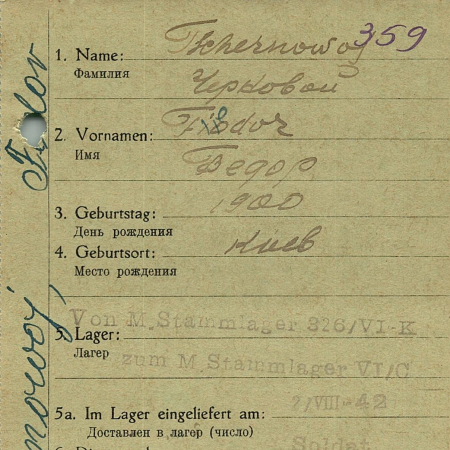 359
1. Name: Tschernowoj
Фамилия
Черковой
2. Vornamen: Fiodor
Имя
Федор
3. Geburtstag: 1900
День рождения
4. Geburtsort: Киев
Место рождения
Von M.Stammlager 326/VI-K
5. Lager:
Лагер
zum M.Stammlager VI/C
5a. Im Lager eingeliefert am: 2/VIII-42
Доставлен в лагер (число)
Soldat
nowoj, Fedor